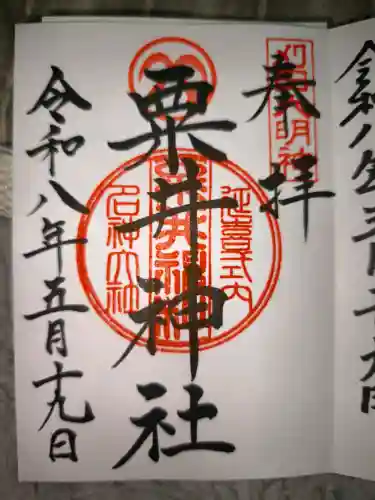 奉拝
粟井神社
延喜式内
粟井神社
名神大社
令和八年五月十九日